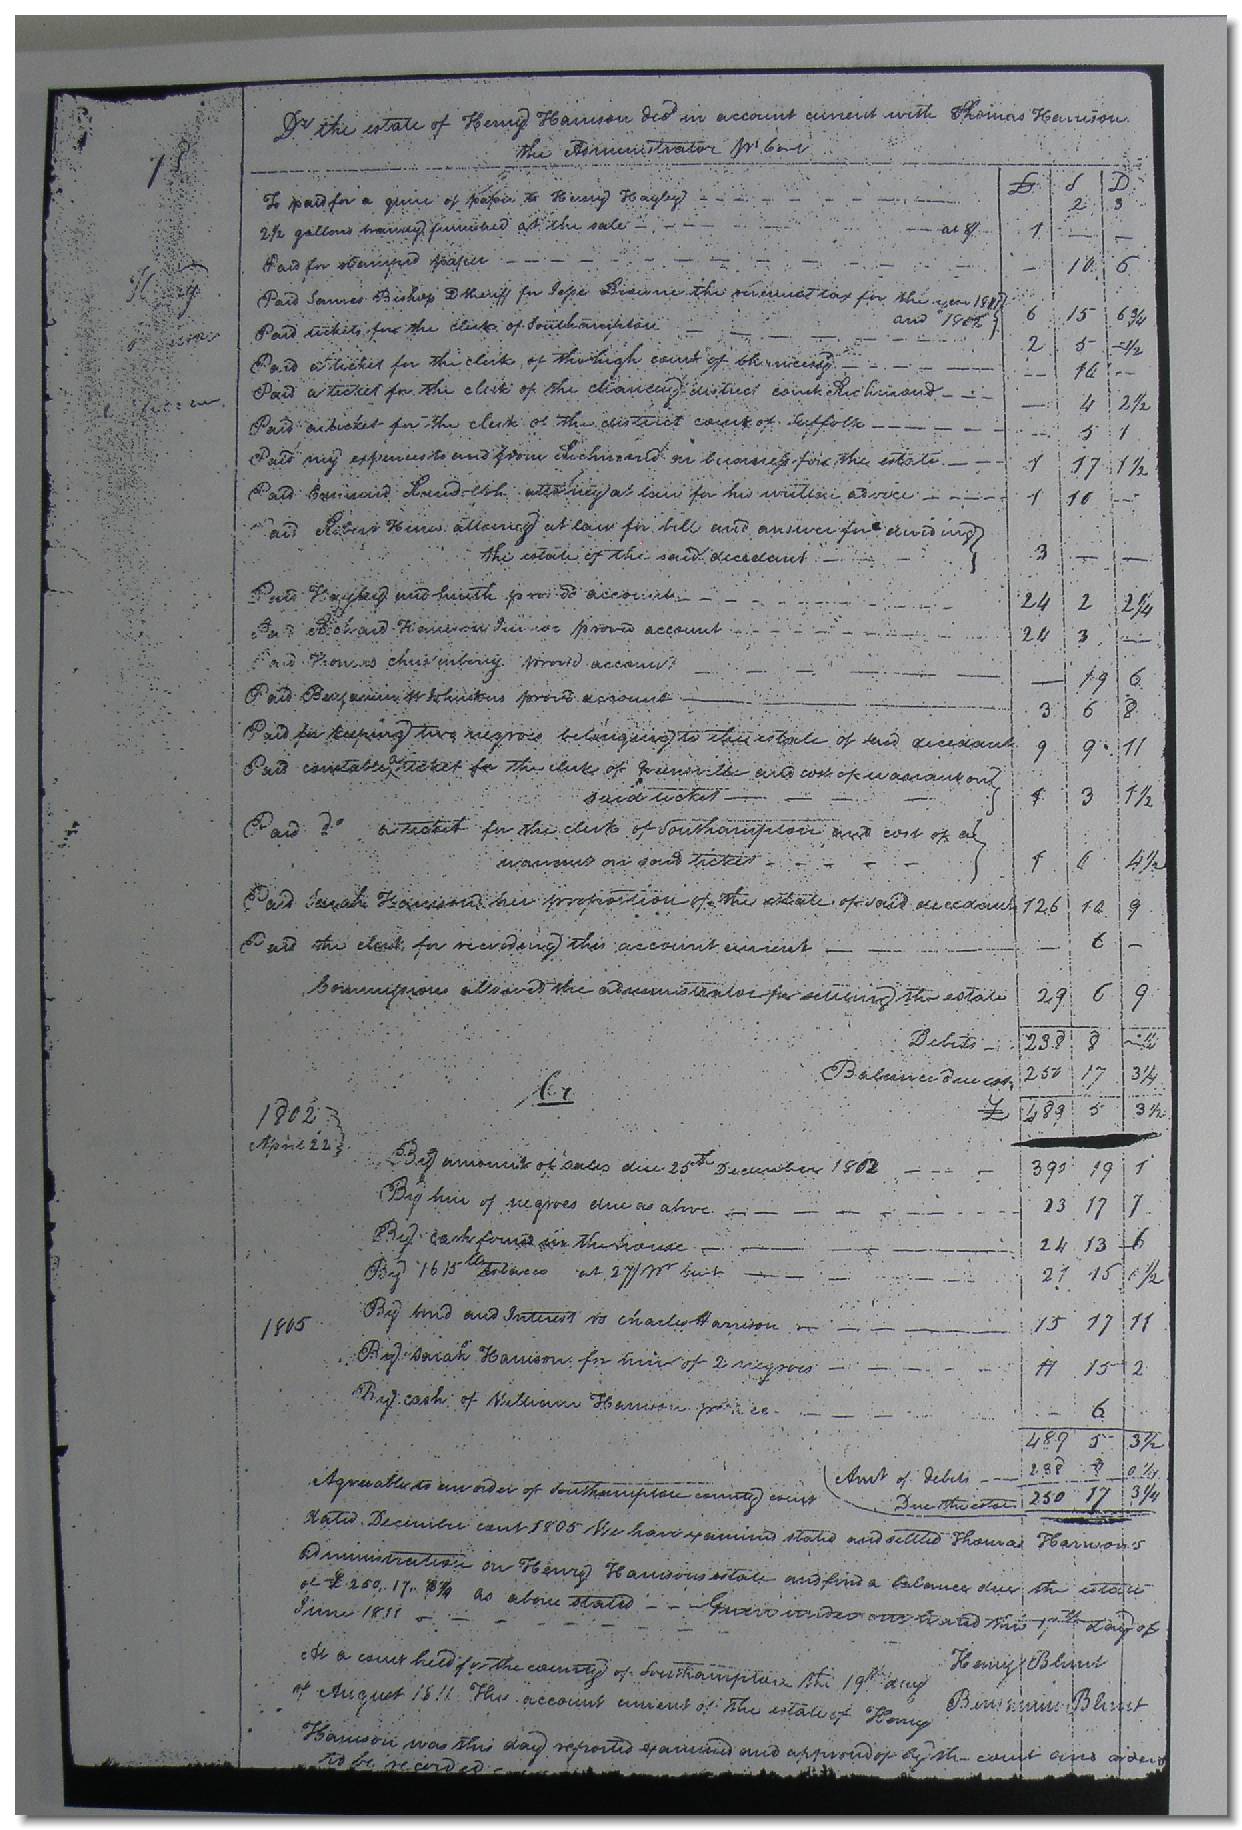 Dr the estate of Henry Harrison decd in account current with Thomas Harrison
the Administrator
£ S D
To paid for a quire of paper to Henry Hayley 2 3
2½ gallons brandy furnished at the sale at 8/ 1 — —
Paid for stamped paper — 10 6
Paid James Bishop D Sheriff for the revenue tax for the year 1801
and 1802 6 15 6¾
Paid tickets for the clerk of Southampton 2 5 —½
Paid a ticket for the clerk of the high court of chancery — 10 —
Paid a ticket for the clerk of the chancery district court Richmond — 4 2½
Paid a ticket for the clerk of the district court of Suffolk — 5 1
Paid my expences to and from Richmond on business for the estate 1 17 1½
Paid Randolph attorney at law for his written advice 1 10 —
Paid Robert attorney at law for bill and answer for dividing
the estate of the said decedant 3 — —
Paid Hayley and provd account 24 2 2¼
Paid Richard Harrison provd account 24 3 —
Paid Thomas provd account — 19 6
Paid Benjamin W Johnston provd account 3 6 8
Paid for keeping two negroes belonging to the estate of said decedant 9 9 11
Paid constable ticket for the clerk of Greensville and cost of warrant on
said ticket 1 3 1½
Paid do a ticket for the clerk of Southampton and cost of a
warrant on said ticket 1 4½
Paid Sarah Harrison her proportion of the estate of said decedant 126 10 9
Paid the clerk for recording this account current — 6 —
Commissions allowed the administrator for settling the estate 29 6 9
Debits 238 8 —¼
Balance due est. 250 17 3¼
£ 489 5 3½
Cr
1802
April 22
By amount of sales due 25th December 1802 390 19 1
By hire of negroes due as above 23 17 7
By cash found in the house 24 13 6
By 1615 lb tobacco at 27/ 21 15 ½
1805 By bond and Interest vs Charles Harrison 15 17 11
By Sarah Harrison for hire of 2 negroes 11 15 2
By cash of William Harrison — 6
489 5 3½
Amt of debits 238 8 0¼
Due the estate 250 17 3¼
Agreeable to an order of Southampton county court
dated December court 1805 We have examined stated and settled Thomas Harrisons
administration on Henry Harrisons estate and find a balance due the estate
of £ 250. 17. 3¼ as above stated — Given under our hand this day of
June 1811
At a court held for the county of Southampton the 19th day Henry Blunt
of August 1811 This account current of the estate of Henry Benjamin Blunt
Harrison was this day reported examined and approved of by the court and order
to be recorded